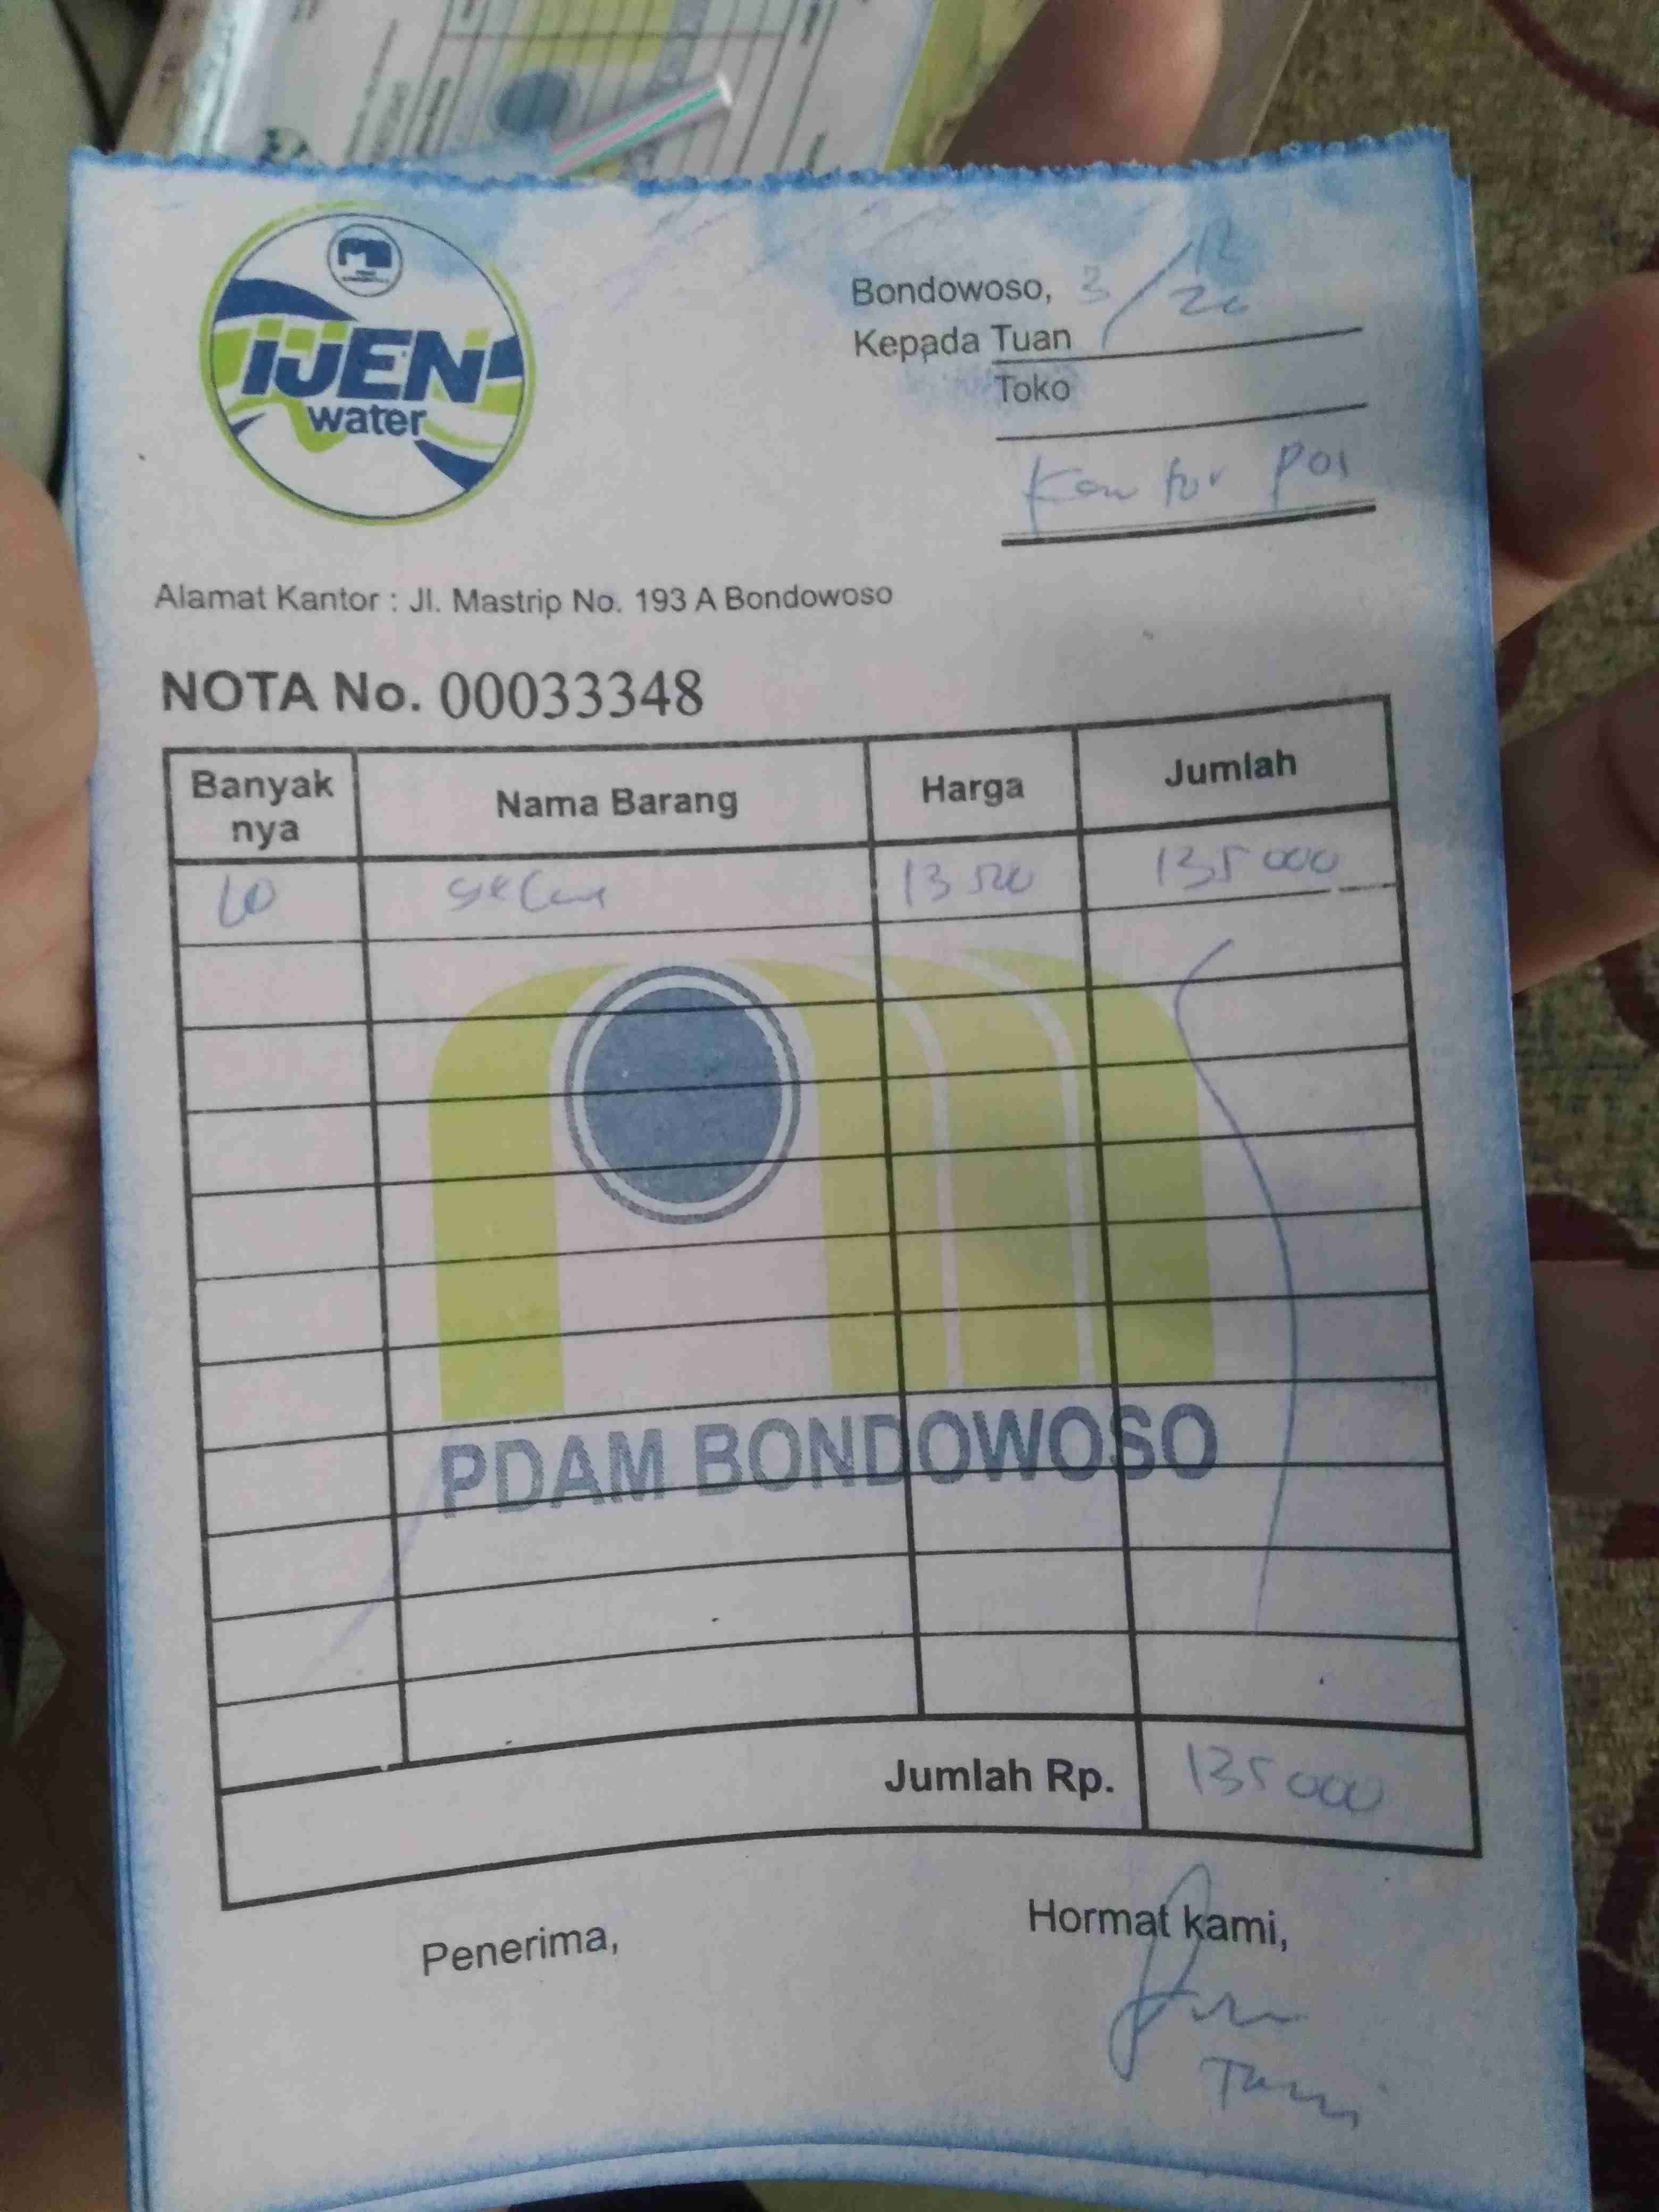 IJEN
water
Bondowoso, 3/12
20
Kepada Tuan
Toko
Kantor pos
Alamat Kantor : Jl. Mastrip No. 193 A Bondowoso
NOTA No. 00033348
Banyak nya Nama Barang Harga Jumlah
10 13 500 135 000
PDAM BONDOWOSO
Jumlah Rp. 135 000
Penerima, Hormat kami,